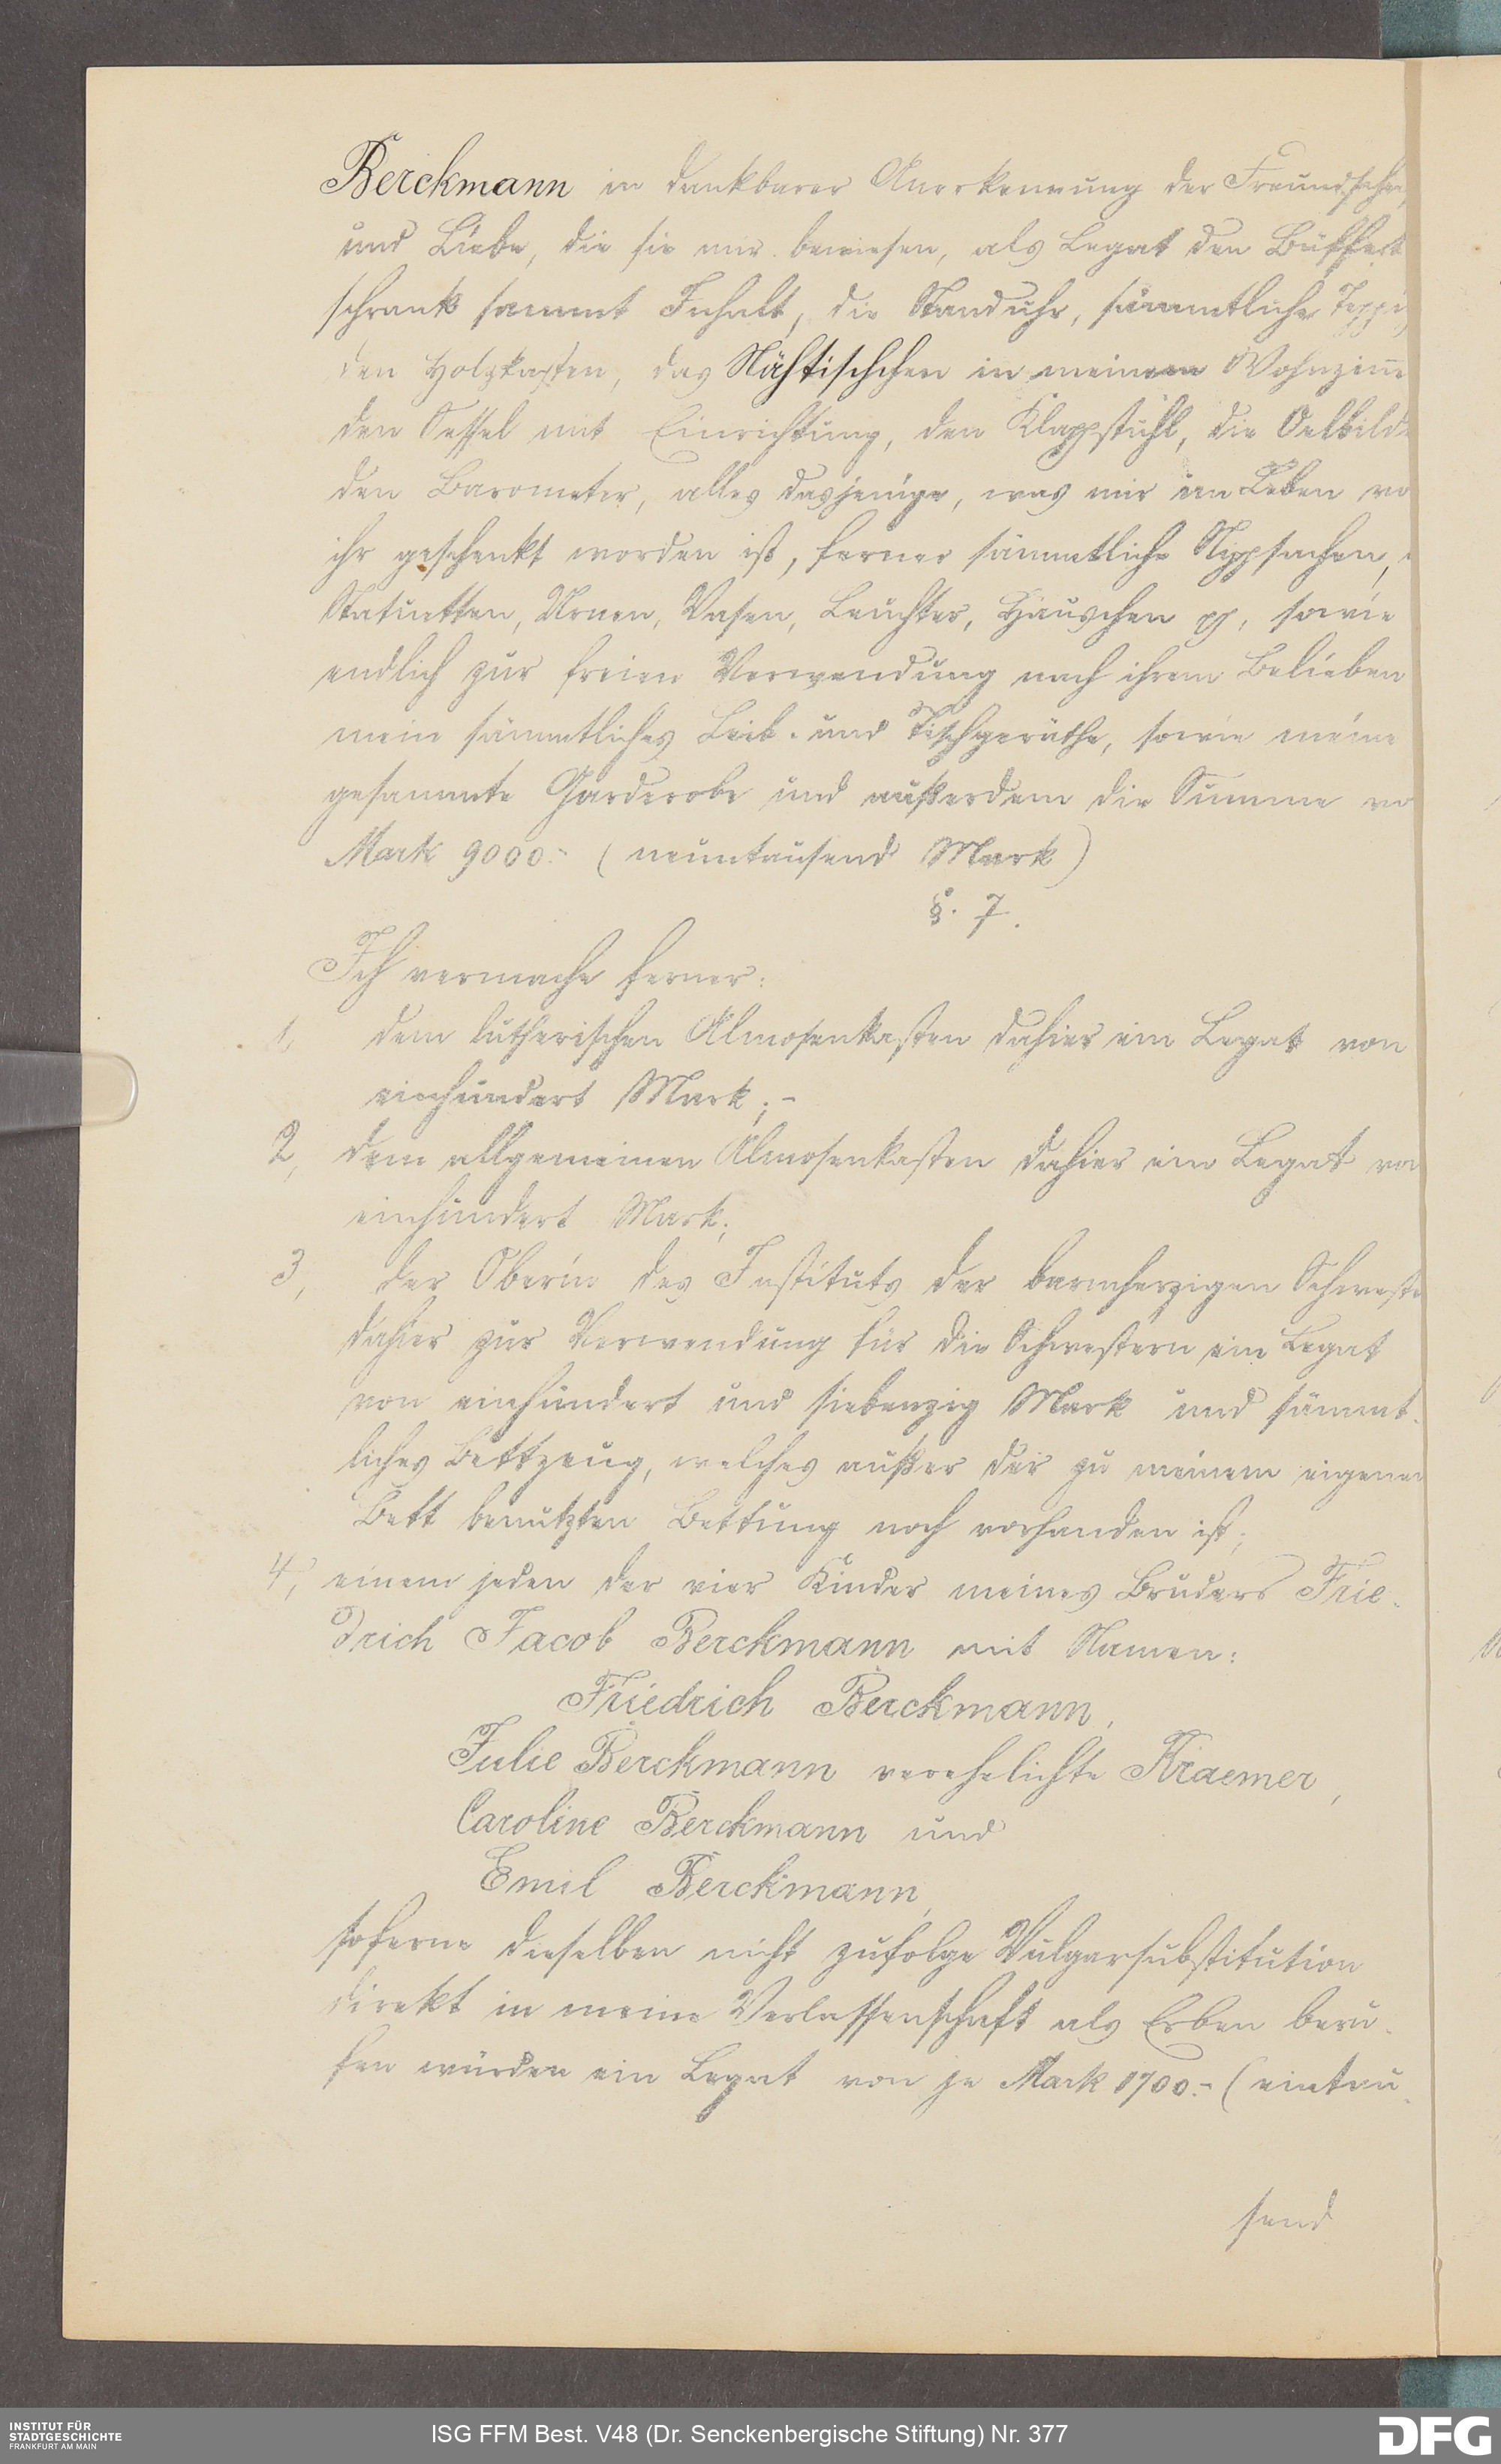 Berckmann in dankbarer Anerkennung der Freundschaf
und Liebe, die sie mir bewiesen, als Legat den Büffett
schrank sammt Inhalt, die Standuhr, sämmtliche Teppi
den Holzkasten, das Nähtischchen in meinem Wohnzim̄e
den Sessel mit Einrichtung, den Klappstuhl, die Oelbilde
den Barometer, alles dasjenige, was mir im Leben vo
ihr geschenkt worden ist, ferner sämmtliche Nippsachen,
Statuetten, Urnen, Vasen, Leuchter, Häuschen pp, sowie
endlich zur freien Verwendung nach ihrem Belieben
mein sämmtliches Leib- und Tischgeräthe, sowie meine
gesammte Garderobe und außerdem die Summe vo
Mark 9000.- (neuntausend Mark)
§. 7.
Ich vermache ferner:
1, dem lutherischen Almosenkasten dahier ein Legat von
einhundert Mark;-
2, dem allgemeinen Almosenkasten dahier ein Legat vo
einhundert Mark;
3, der Oberin des Instituts der barmherzigen Schweste
dahier zur Verwendung für die Schwestern ein Legat
von einhundert und siebenzig Mark und sämmt-
liches Bettzeug, welches außer der zu meinem eigenen
Bett benutzten Bettung noch vorhanden ist;
4, einem jeden der vier Kinder meines Bruders Frie-
drich Jacob Berckmann mit Namen:
Friedrich Berckmann,
Julie Berckmann verehelichte Kraemer,
Caroline Berckmann und
Emil Berckmann,
soferne dieselben nicht zufolge Vulgarsubstitution
direkt in meine Verlassenschaft als Erben beru-
fen würden ein Legat von je Mark 1700.- (eintau-
send
INSTITUT FÜR
STADTGESCHICHTE
FRANKFURT AM MAIN
ISG FFM Best. V48 (Dr. Senckenbergische Stiftung) Nr. 377
DFG